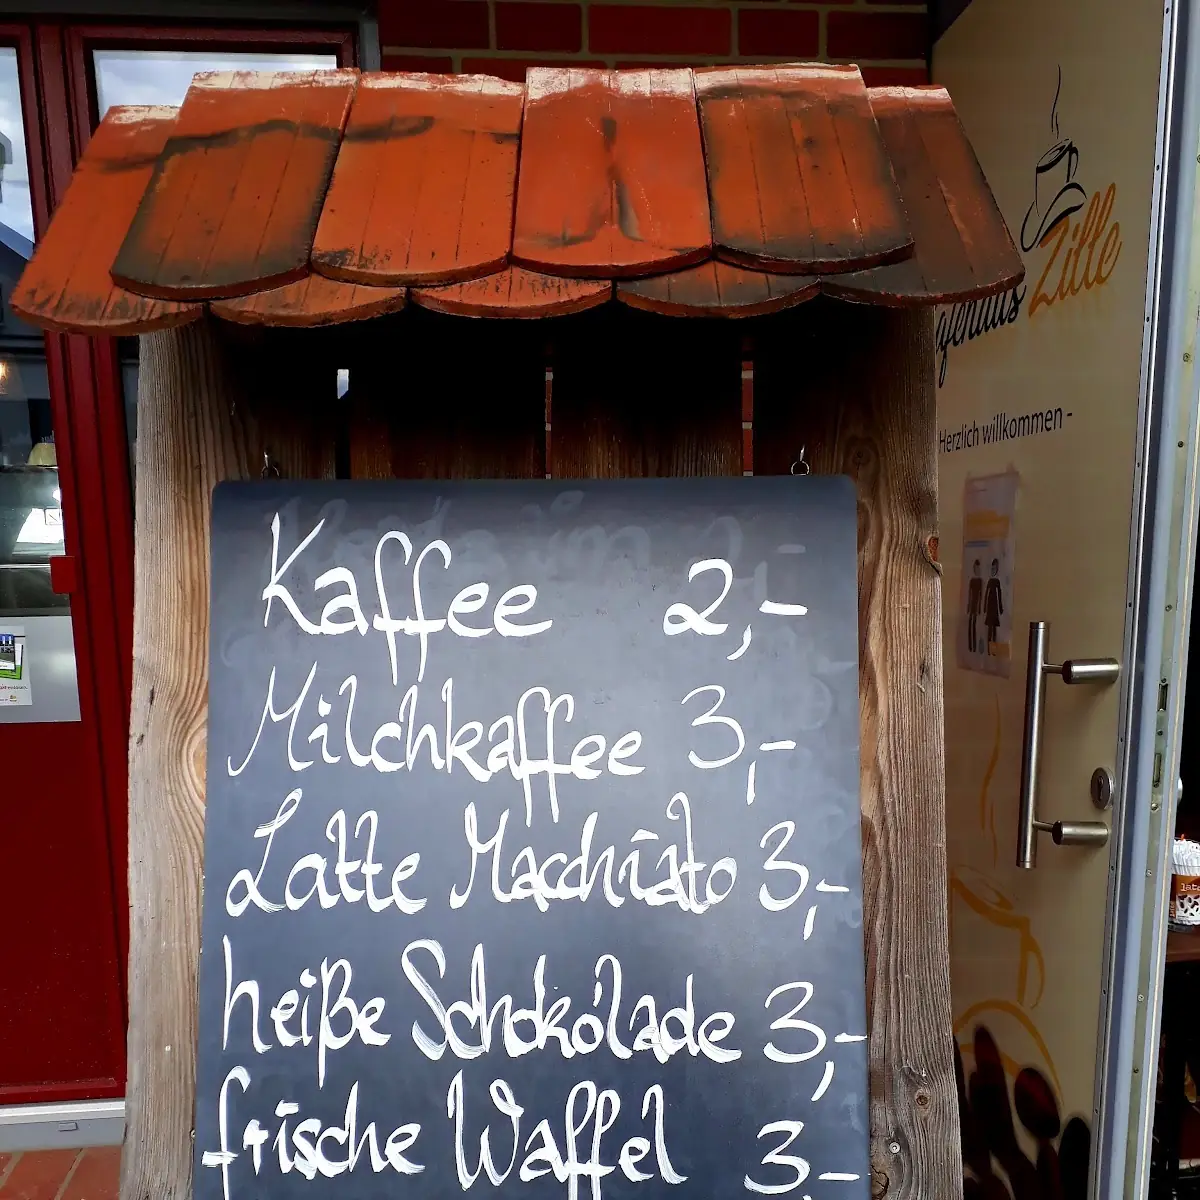 Zille
Herzlich willkommen -
Kaffee 2,-
Milchkaffee 3,-
Latte Macchiato 3,-
heiße Schokolade 3,-
frische Waffel 3,-